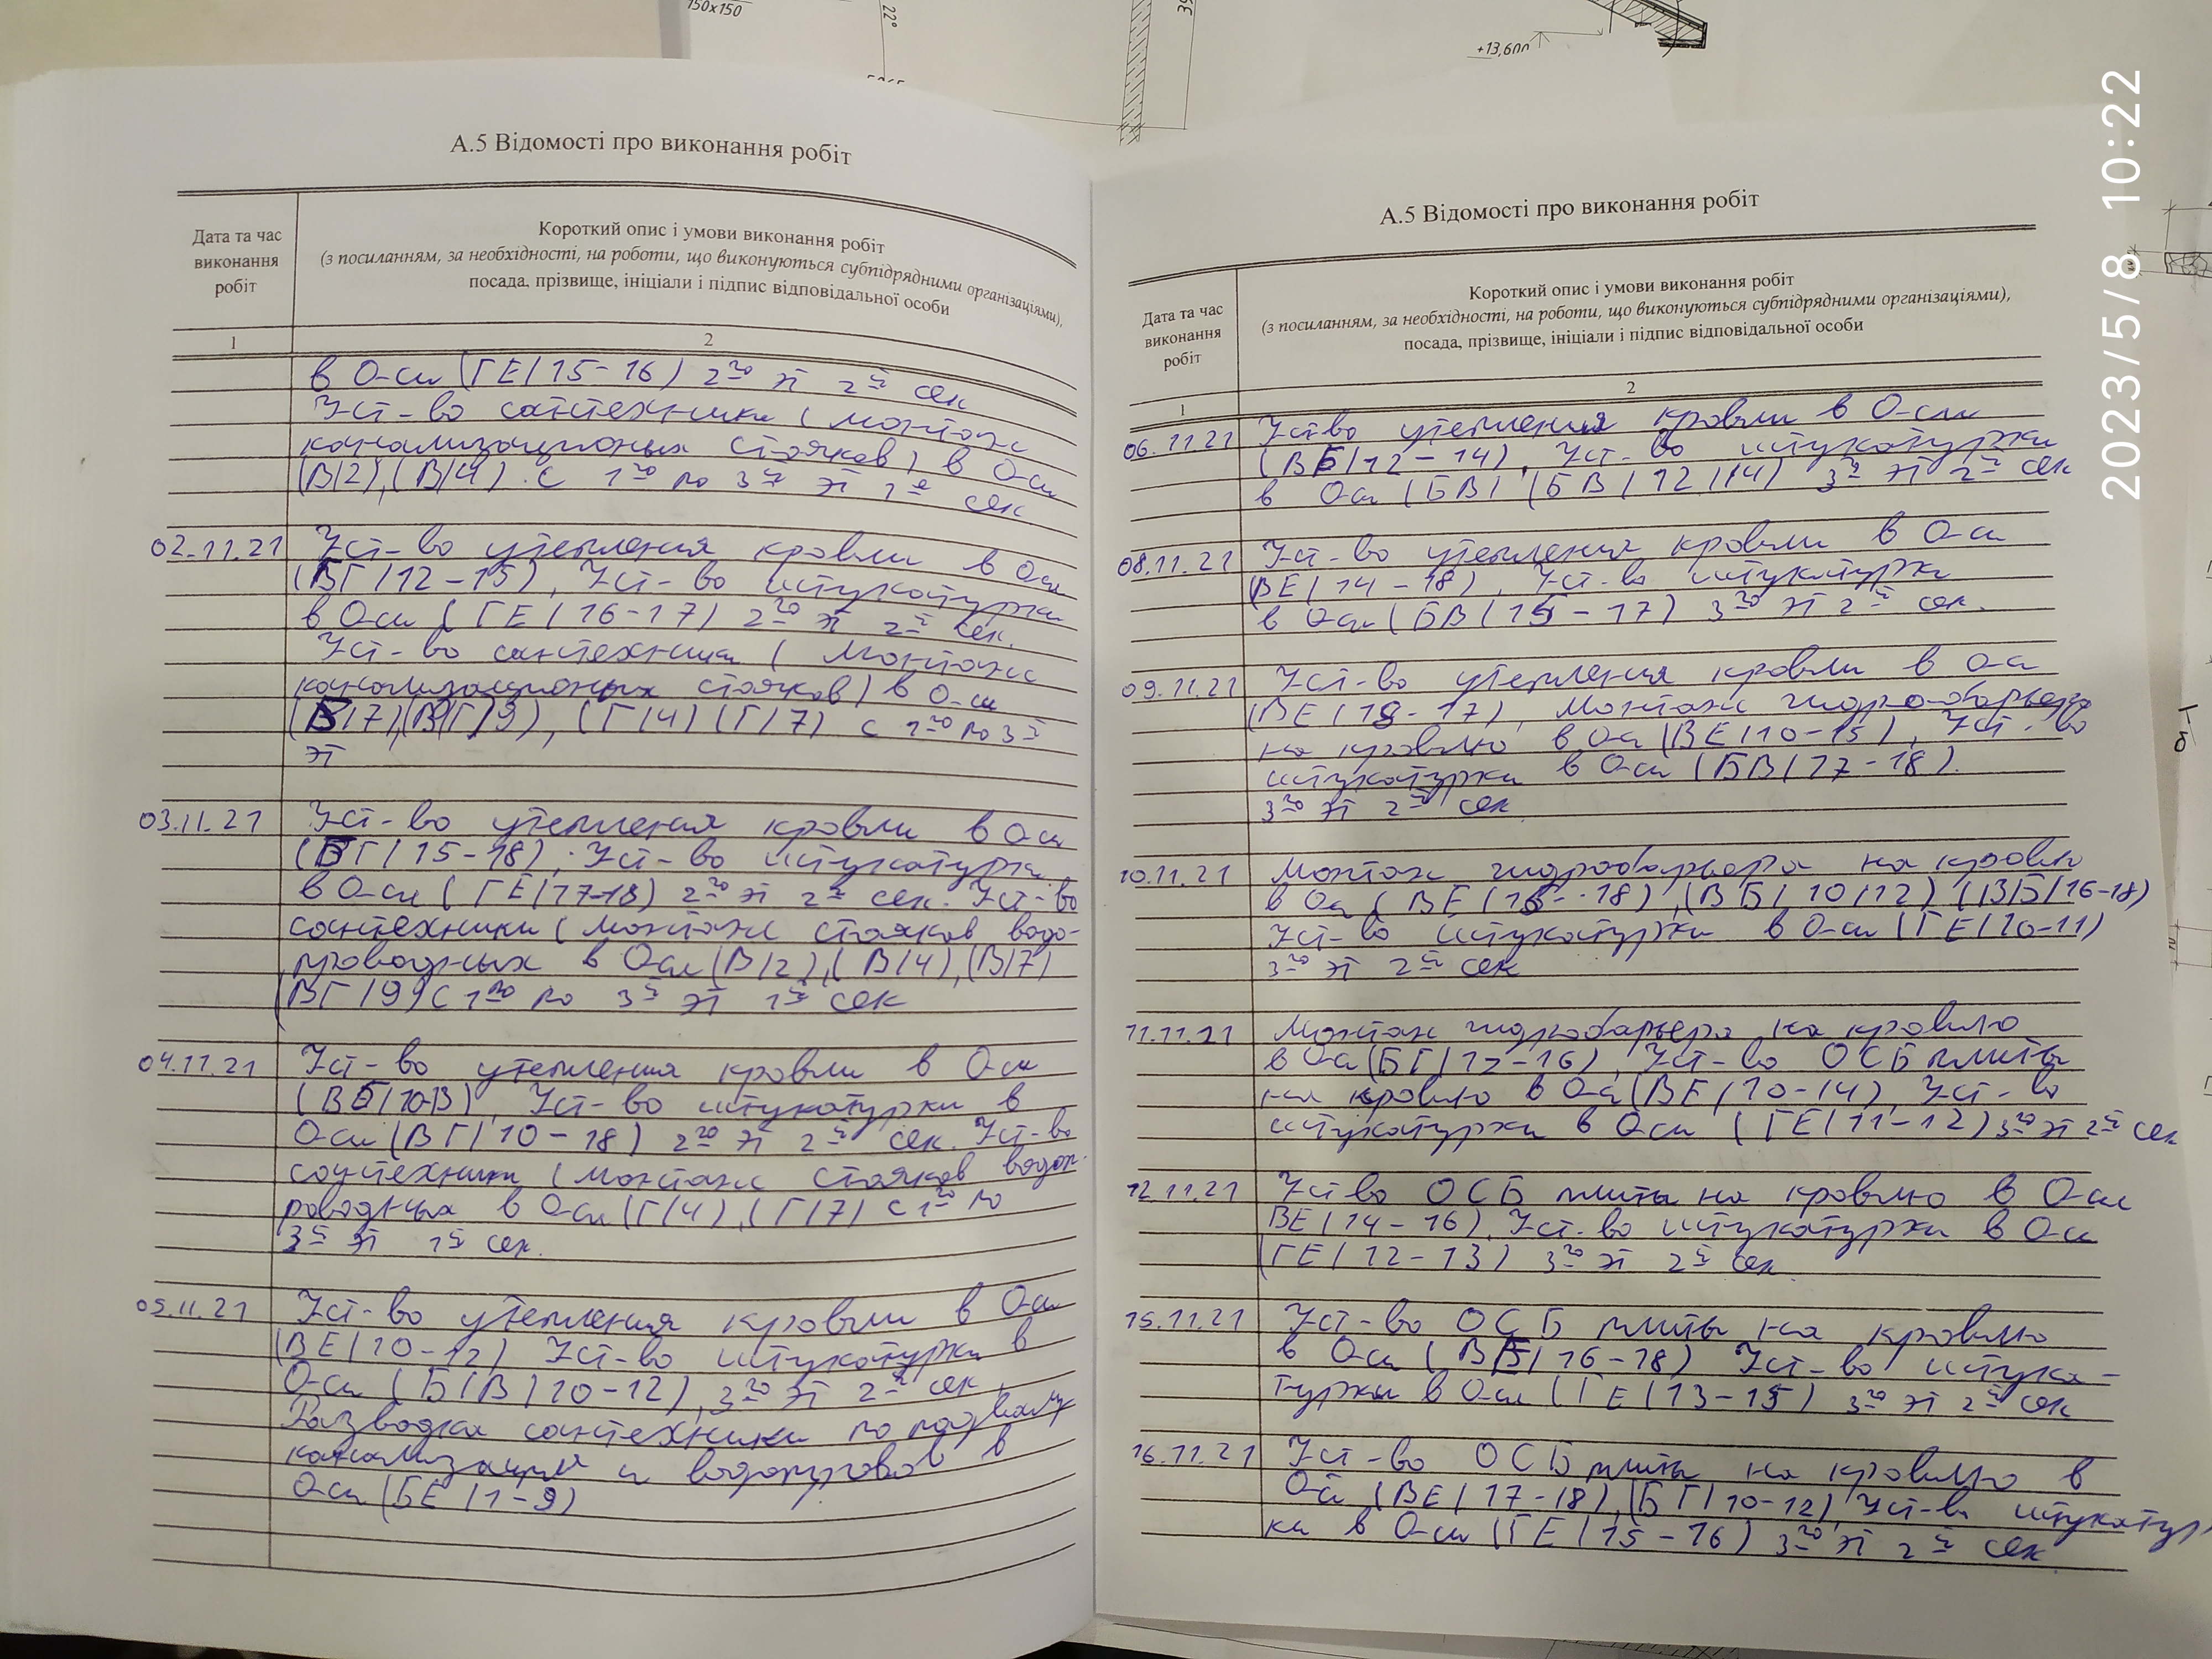 150x150
22°
+13,600
2023/5/8 10:22
А.5 Відомості про виконання робіт
Дата та час
виконання
робіт
Короткий опис і умови виконання робіт
(з посиланням, за необхідності, на роботи, що виконуються субпідрядними організаціями),
посада, прізвище, ініціали і підпис відповідальної особи
1
2
в О-си (ГЕ/15-16) 2го эт 2й сек
Уст-во сантехники (монтаж
канализационых стояков) в О-си
(В/2), (В/4). с 1го по 3й эт 1й сек
02.11.21 Уст-во утепления кровли в Оси
(ВГ/12-15), Уст-во штукатурки
в О-си (ГЕ/16-17) 2го эт 2й сек.
Уст-во сантехники (монтаж
канализационых стояков) в О-си
(В/7), (ВГ/9), (Г/4) (Г/7) с 1го по 3й
эт
03.11.21 Уст-во утепления кровли в Оси
(БГ/15-18), Уст-во штукатурки
в О-си (ГЕ/17-18) 2го эт 2й сек. Уст-во
сантехники (монтаж стояков водо-
проводных в Оси (В/2), (В/4), (В/7)
(ВГ/9) С 1го по 3й эт 1й сек
04.11.21 Уст-во утепления кровли в Оси
(ВБ/10-13), Уст-во штукатурки в
Оси (ВГ/10-18) 2го эт 2й сек. Уст-во
сантехники (монтаж стояков водоп-
роводных в О-си (Г/4), (Г/7) с 1го по
3й эт 1й сек.
05.11.21 Уст-во утепления кровли в Оси
(ВЕ/10-12) Уст-во штукатурки в
О-си (Б/В/10-12), 3го эт 2й сек.
Разводка сантехники по подвалу
канализаций и водопровов в
О-си (БЕ/1-9)
А.5 Відомості про виконання робіт
Дата та час
виконання
робіт
Короткий опис і умови виконання робіт
(з посиланням, за необхідності, на роботи, що виконуються субпідрядними організаціями),
посада, прізвище, ініціали і підпис відповідальної особи
1
2
06.11.21 Уст-во утепления кровли в О-си
(ВБ/12-14), Уст-во штукатурки
в Оси (БВ/ (БВ/12/14) 3го эт 2й сек
08.11.21 Уст-во утепления кровли в О-си
(ВЕ/14-18), Уст-во штукатурки
в О-си (БВ/15-17) 3го эт 2й сек.
09.11.21 Уст-во утепления кровли в О-си
(ВЕ/18-17), Монтаж гидро-барьера
на кровлю в Оси (ВЕ/10-15), Уст-во
штукатурки в О-си (БВ/17-18).
3го эт 2й сек
10.11.21 Монтаж гидробарьера на кровлю
в Оси (ВЕ/15-18), (ВБ/10/12) (ВБ/16-18)
Уст-во штукатурки в О-си (ГЕ/10-11)
3го эт 2й сек
11.11.21 Монтаж гидробарьера на кровлю
в О-си (БГ/12-16), Уст-во ОСБ плиты
на кровлю в Оси (ВЕ/10-14), Уст-во
штукатурки в Оси (ГЕ/11-12) 3го эт 2й сек
12.11.21 Уст-во ОСБ плиты на кровлю в О-си
ВЕ/14-16), Уст-во штукатурки в О-си
(ГЕ/12-13) 3го эт 2й сек
15.11.21 Уст-во ОСБ плиты на кровлю
в О-си (ВБ/16-18) Уст-во штука-
турки в О-си (ГЕ/13-15) 3го эт 2й сек
16.11.21 Уст-во ОСБ плиты на кровлю в
О-си (ВЕ/17-18), (БГ/10-12), Уст-во штукатур
ки в О-си (ГЕ/15-16) 3го эт 2й сек